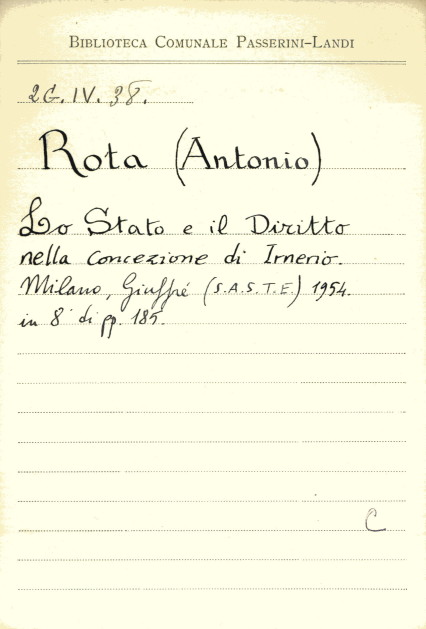 BIBLIOTECA COMUNALE PASSERINI-LANDI
2G. IV. 38.
Rota (Antonio)
Lo Stato e il Diritto
nella concezione di Irnerio.
Milano, Giuffré (S.A.S.T.E.) 1954.
in 8° di pp. 185.
C